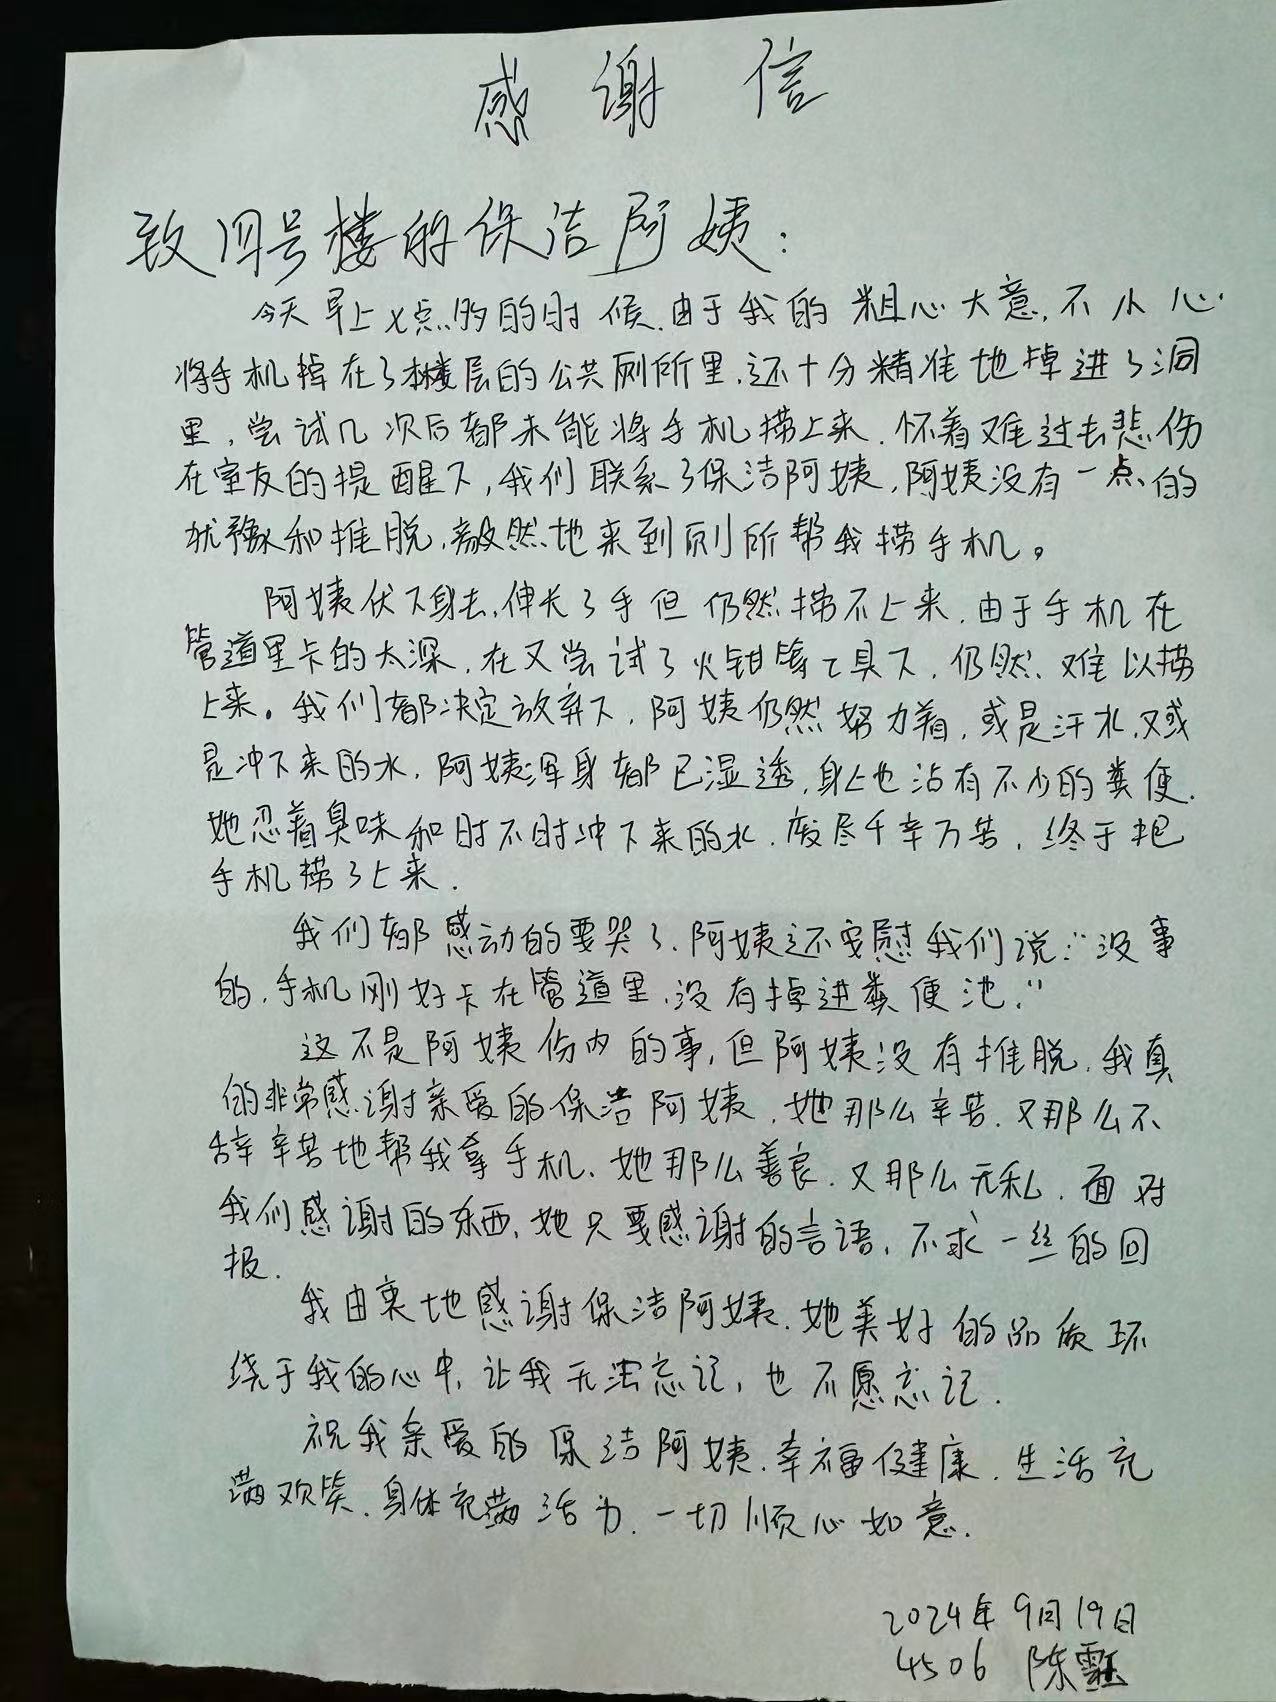 感谢信
致四号楼的保洁阿姨：
今天早上七点多的时候,由于我的粗心大意,不小心
将手机掉在了本楼层的公共厕所里,还十分精准地掉进了洞
里,尝试几次后都未能将手机捞上来,怀着难过去悲伤
在室友的提醒下,我们联系了保洁阿姨,阿姨没有一点的
犹豫和推脱,毅然地来到厕所帮我捞手机。
阿姨伏下身去,伸长了手但仍然捞不上来,由于手机在
管道里卡的太深,在又尝试了火钳等工具下,仍然难以捞
上来。我们都决定放弃下,阿姨仍然努力着,或是汗水,又或
是冲下来的水,阿姨浑身都已湿透,身上也沾有不少的粪便.
她忍着臭味和时不时冲下来的水,废尽千辛万苦,终于把
手机捞了上来.
我们都感动的要哭了,阿姨还安慰我们说:"没事
的,手机刚好卡在管道里,没有掉进粪便池."
这不是阿姨份内的事,但阿姨没有推脱,我真
的非常感谢亲爱的保洁阿姨,她那么辛苦,又那么不
辞辛苦地帮我拿手机,她那么善良,又那么无私,面对
我们感谢的东西,她只要感谢的言语,不求一丝的回
报.
我由衷地感谢保洁阿姨,她美好的品质环
绕于我的心中,让我无法忘记,也不愿忘记.
祝我亲爱的保洁阿姨,幸福健康,生活充
满欢笑,身体充满活力,一切顺心如意.
2024年9月19日
4506 陈